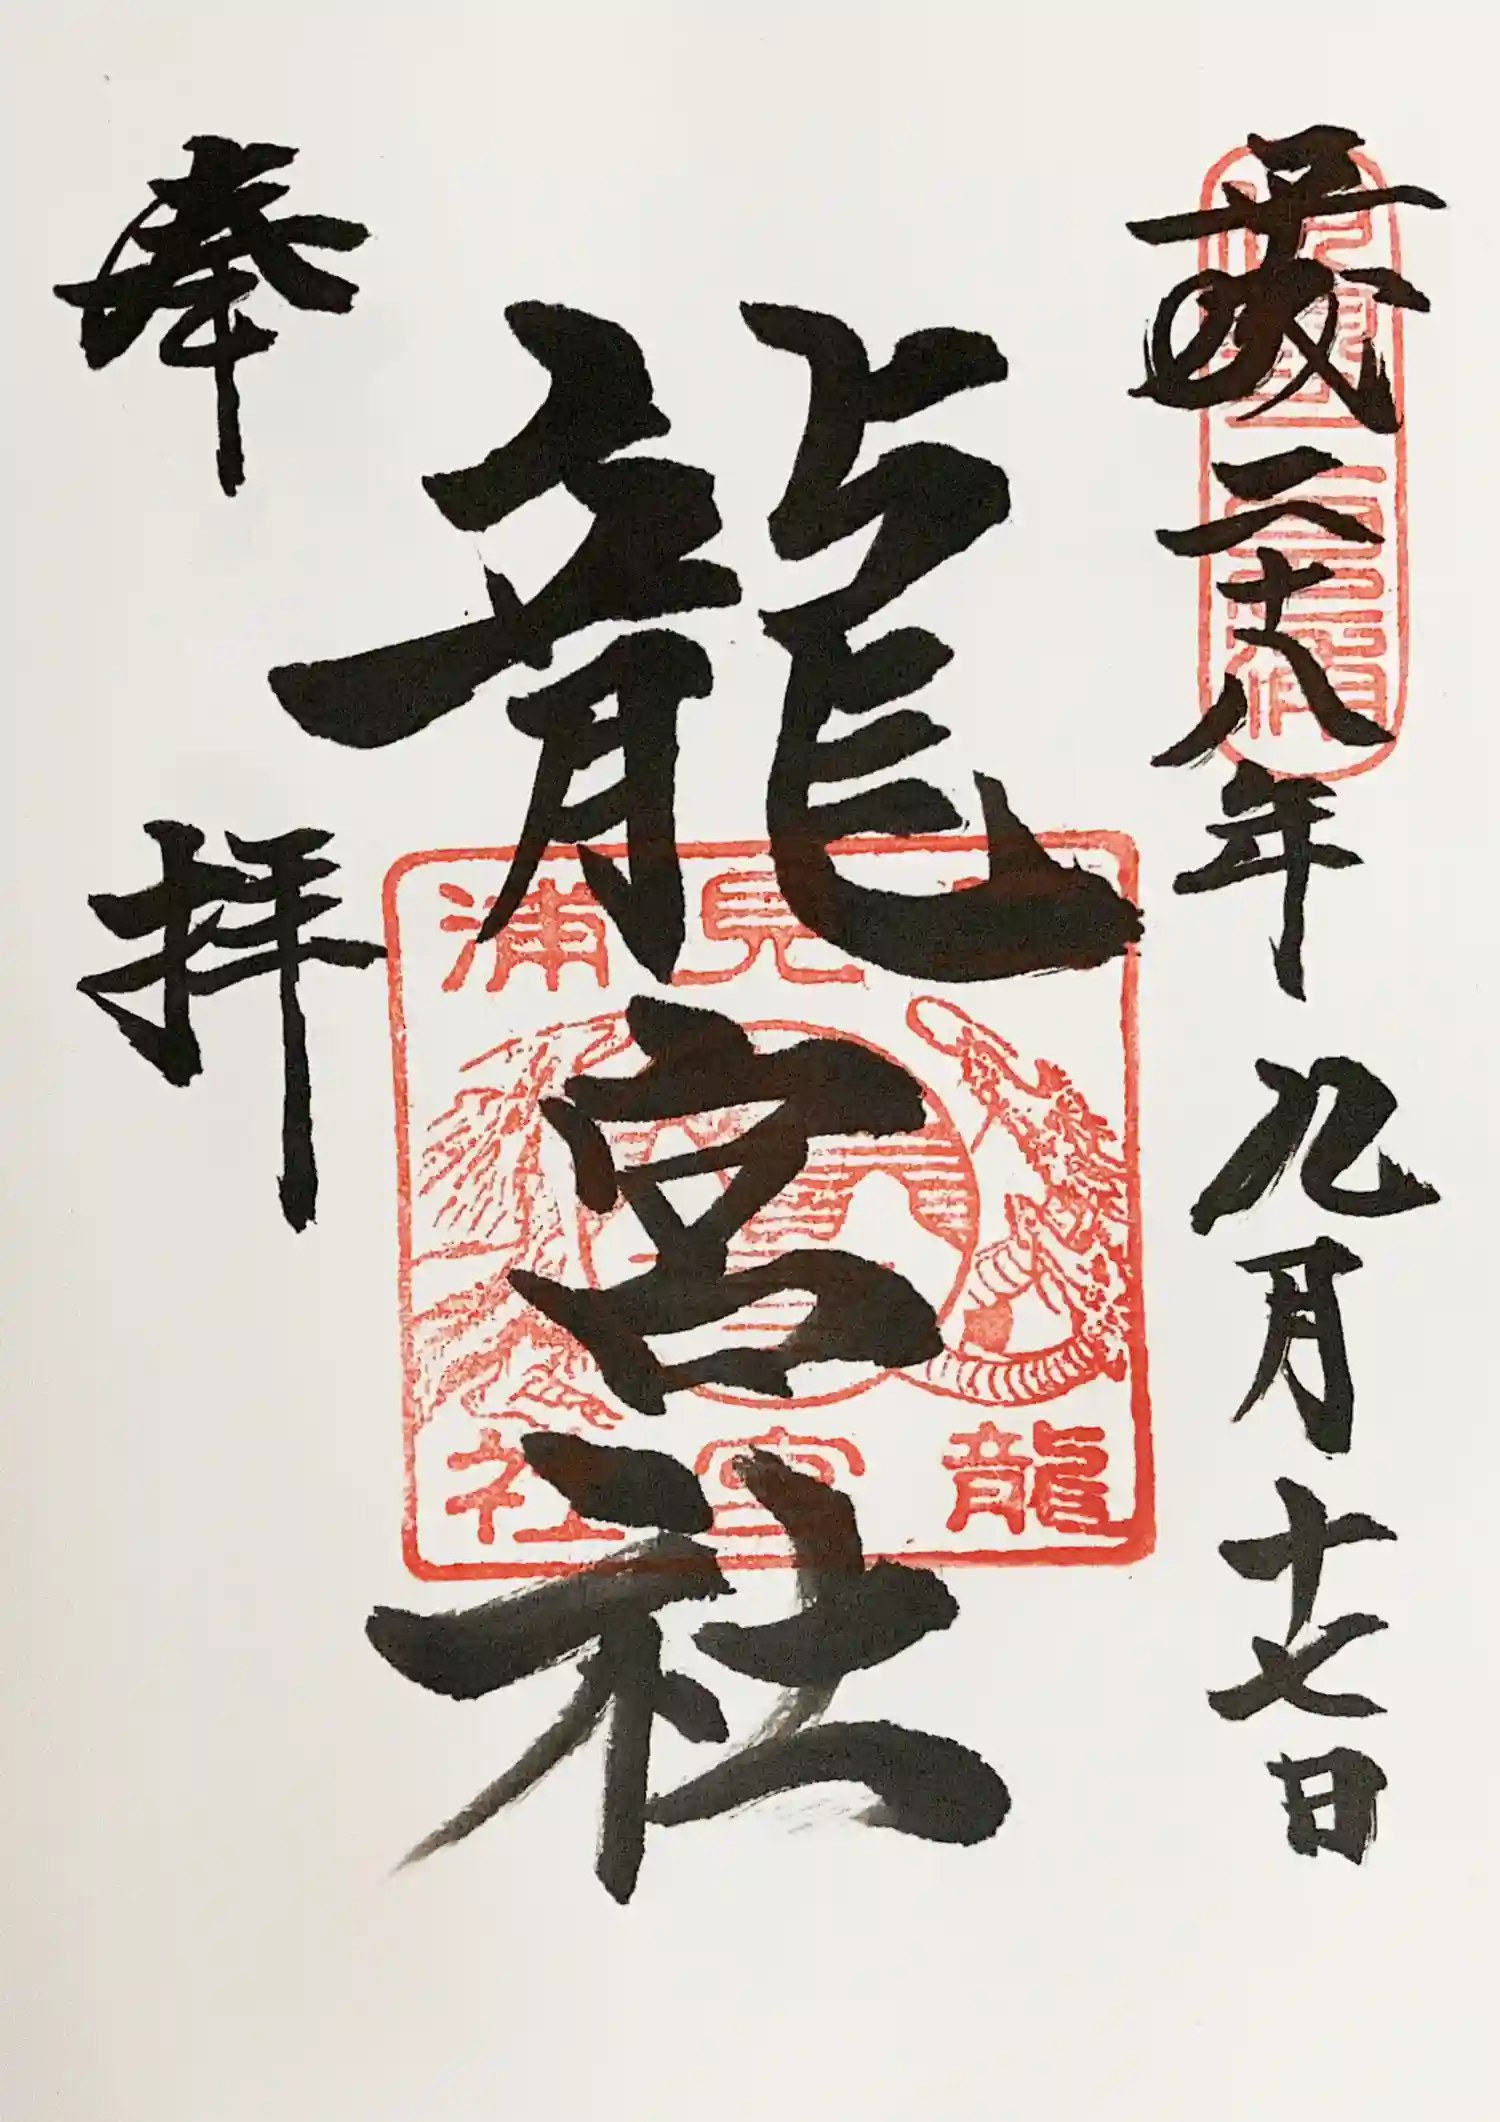 平成二十八年 九月十七日
龍宮社
奉拝
見浦
龍宮社